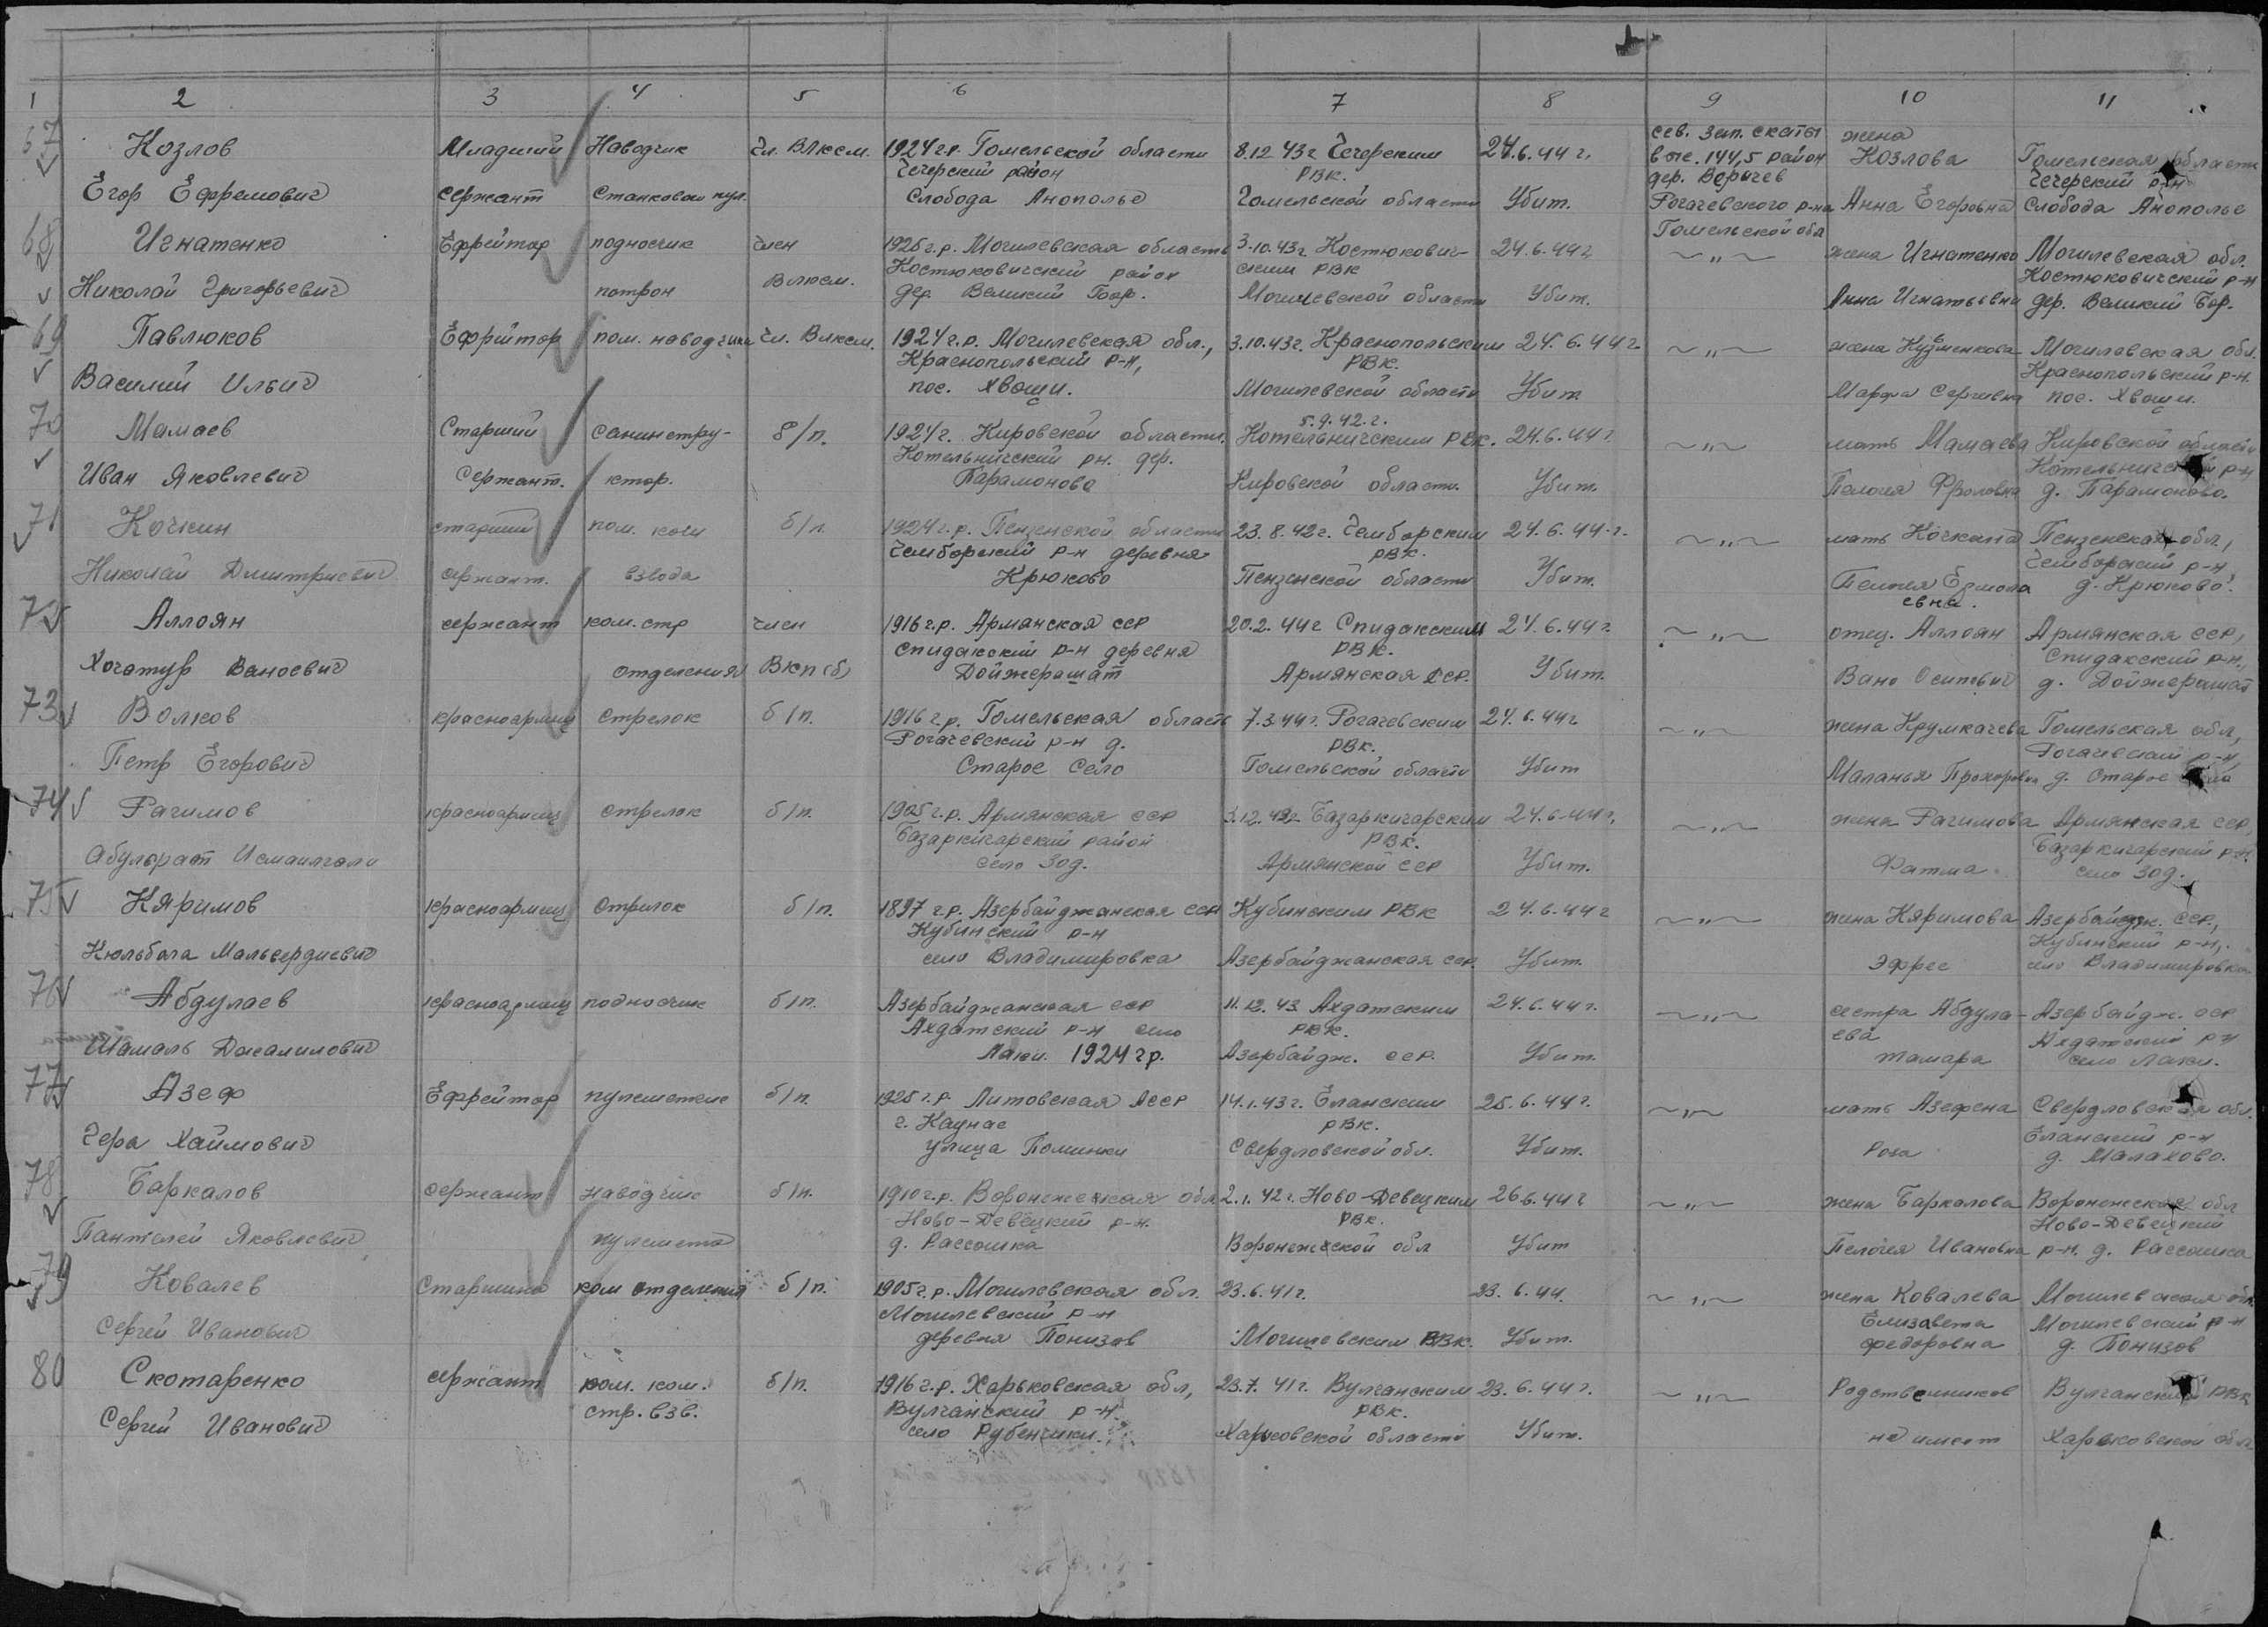 1 2 3 4 5 6 7 8 9 10 11
67 Козлов Младший Наводчик Чл. Влксм. 1924 г.р. Гомельской области 8.12.43 г. Чечерским 24.6.44 г. сев. зап. скаты жена
Чечерский район РВК. выс. 144,5 район Козлова Гомельская область
дер. Веричев Чечерский р-н
Егор Ефремович сержант Станковои пул. Слобода Анополье Гомельской области Убит. Рогачевского р-на Анна Егоровна Слобода Анополье
Гомельской обл
68 Игнатенко Ефрейтор подносчик член 1925 г.р. Могилевская область 3.10.43 г. Костюкович- 24.6.44 г. ~„~ жена Игнатенко Могилевская обл.
Костюковичский район ским РВК Костюковичский р-н
Николай Григорьевич патрон Влксм. дер. Великий Бор. Могилевской области Убит. Анна Игнатьевна дер. Великий Бор.
69 Павлюков Ефрейтор пом. наводчика Чл. Влксм. 1924 г.р. Могилевская обл., 3.10.43 г. Краснопольским 24.6.44 г. ~„~ жена Кузменкова Могилевская обл.
Краснопольский р-н, РВК. Краснопольский р-н.
Василий Ильич пос. Хвощи. Могилевской области Убит. Марфа Сергеевна пос. Хвощи.
5.9.42 г.
70 Мамаев Старший санинстру- б/п. 1924 г. Кировской области. Котельничским РВК. 24.6.44 г. ~„~ мать Мамаева Кировской области
Котельничский рн. дер. Котельничский р-н
Иван Яковлевич Сержант. ктор. Парамоново Кировской области. Убит. Пелогея Фроловна д. Парамоново.
71 Кочкин старший пом. ком б/п. 1924 г.р. Пензенской области 23.8.42 г. Чембарским 24.6.44 г. ~„~ мать Кочкина Пензенская обл.,
Чембарский р-н деревня РВК. Чембарский р-н,
Николай Дмитриевич сержант. взвода Крюково Пензенской области Убит. Пелогея Ермола д. Крюково.
евна.
72 Аллоян сержант ком. стр член 1916 г.р. Армянская сср 20.2.44 г. Спидакским 24.6.44 г. ~„~ отец. Аллоян Армянская сср,
Спидакский р-н деревня РВК. Спидакский р-н.,
Хочатур Ваноевич отделения ВКП(б) Дойжерашат Армянская сср. Убит. Вано Осипович д. Дойжерашат
73 Волков красноармеец стрелок б/п. 1916 г.р. Гомельская область 7.3.44 г. Рогачевским 24.6.44 г. ~„~ жена Крумкачева Гомельская обл,
Рогачевский р-н д. РВК. Рогачевский р-н,
Петр Егорович Старое Село Гомельской области Убит Маланья Прохоровна д. Старое село
74 Рагимов красноармеец стрелок б/п. 1905 г.р. Армянская сср 3.12.42 г. Базаркичарским 24.6.44 г. ~„~ жена Рагимова Армянская сср,
Базаркичарский район РВК. Базаркичарский р-н.
Абульфат Исмаилгали село Зод. Армянской сср Убит. Фатма село Зод.
75 Кяримов красноармеец Стрелок б/п. 1897 г.р. Азербайджанская сср Кубинским РВК 24.6.44 г ~„~ жена Кяримова Азербайдж. сср.,
Кубинский р-н Кубинский р-н,
Кюльбала Мальвердиевич село Владимировка Азербайджанская сср. Убит. Эфрес село Владимировка
76 Абдулаев красноармеец подносчик б/п. Азербайджанская сср 11.12.43 Ахдатским 24.6.44 г. ~„~ сестра Абдула- Азербайдж. сср
Ахдатский р-н село РВК. ева Ахдатский р-н
Шамаль Джалилович Лаки. 1924 г р. Азербайдж. сср. Убит. Тамара село Лаки.
77 Азеф Ефрейтор пулеметчик б/п. 1925 г.р. Литовская Асср 14.1.43 г. Еланским 25.6.44 г. ~„~ мать Азефена Свердловская обл.
г. Каунас РВК. Еланский р-н
Гера Хаймович улица Поминки Свердловской обл. Убит. Роза д. Малахово.
78 Баркалов сержант наводчик б/п. 1910 г.р. Воронежская обл 2.1.42 г. Ново-Девецким 26.6.44 г ~„~ жена Баркалова Воронежская обл
Ново-Девецкий р-н. РВК. Ново-Девецкий
Пантелей Яковлевич пулемета д. Рассошка Воронежской обл Убит Пелогея Ивановна р-н. д. Рассошка
79 Ковалев Старшина ком отделения б/п. 1905 г.р. Могилевская обл. 23.6.41 г. 23.6.44. ~„~ жена Ковалева Могилевская обл.
Могилевский р-н Елизавета Могилевский р-н
Сергей Иванович деревня Понизов Могилевским РВК. Убит. федоровна д. Понизов
80 Скотаренко сержант пом. ком. б/п. 1916 г.р. Харьковская обл, 23.7.41 г. Вулчанским 23.6.44 г. ~„~ Родственников Вулчанский РВК
стр. взв. Вулчанский р-н. РВК.
Сергей Иванович село Рубенчики. Харьковской области Убит. не имеет Харьковской обл.